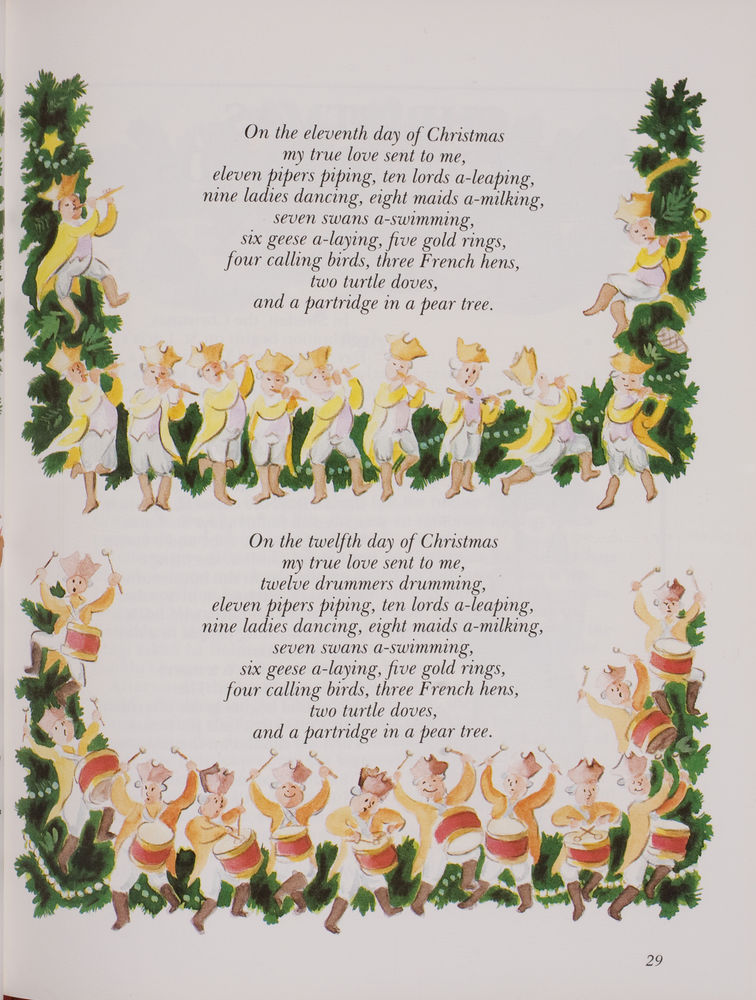 On the eleventh day of Christmas
my true love sent to me,
eleven pipers piping, ten lords a-leaping,
nine ladies dancing, eight maids a-milking,
seven swans a-swimming,
six geese a-laying, five gold rings,
four calling birds, three French hens,
two turtle doves,
and a partridge in a pear tree.
On the twelfth day of Christmas
my true love sent to me,
twelve drummers drumming,
eleven pipers piping, ten lords a-leaping,
nine ladies dancing, eight maids a-milking,
seven swans a-swimming,
six geese a-laying, five gold rings,
four calling birds, three French hens,
two turtle doves,
and a partridge in a pear tree.
29